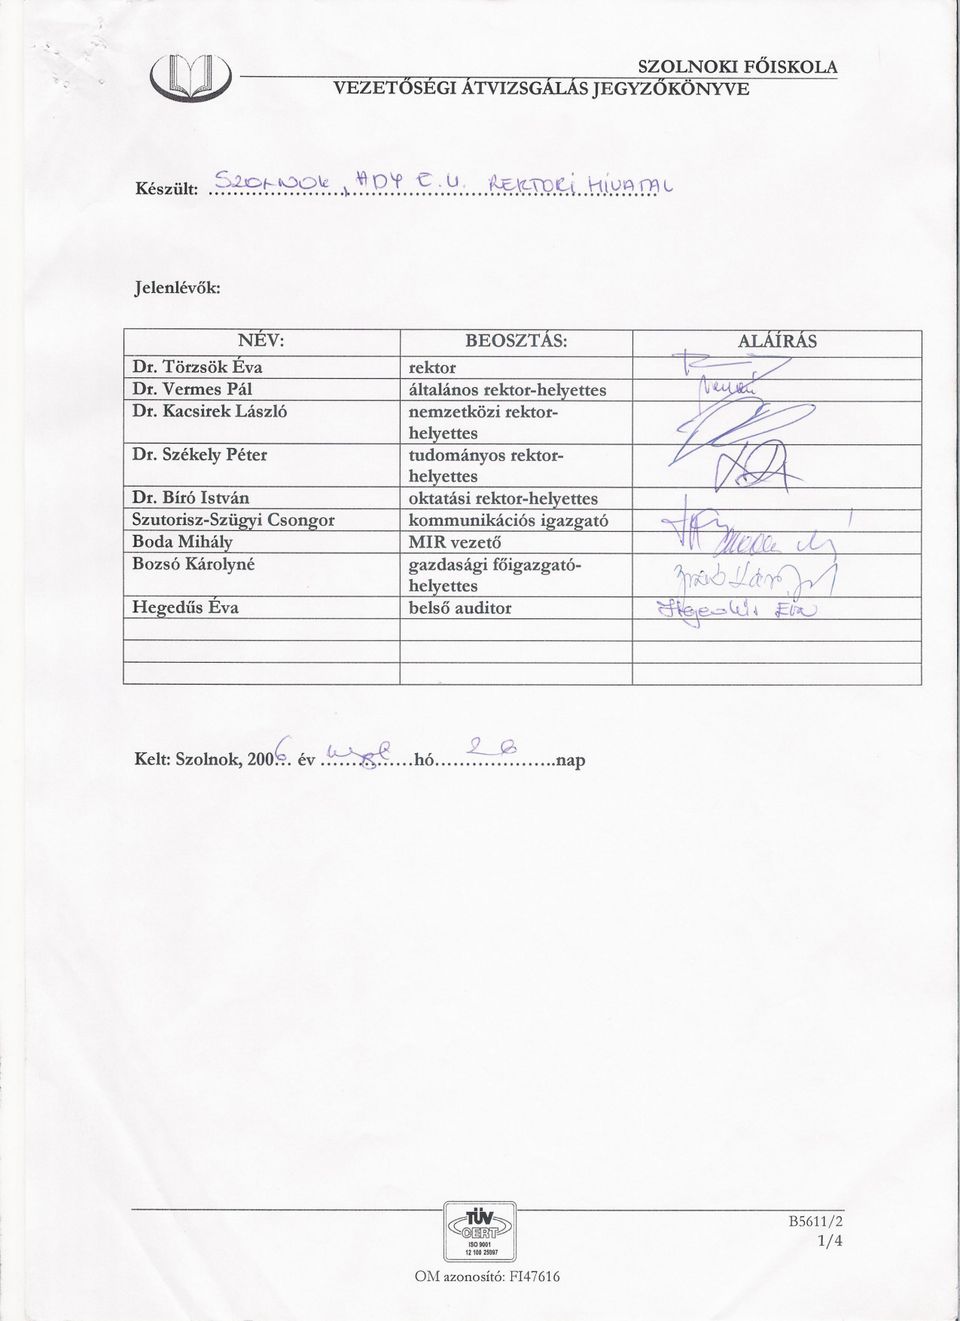 SZOLNOKI FŐISKOLA
VEZETŐSÉGI ÁTVIZSGÁLÁS JEGYZŐKÖNYVE
Készült: SZOLNOK, ADY E. U. REKTORI HIVATAL
Jelenlévők:
NÉV: BEOSZTÁS: ALÁÍRÁS
Dr. Törzsök Éva rektor
Dr. Vermes Pál általános rektor-helyettes
Dr. Kacsirek László nemzetközi rektor-
helyettes
Dr. Székely Péter tudományos rektor-
helyettes
Dr. Bíró István oktatási rektor-helyettes
Szutorisz-Szügyi Csongor kommunikációs igazgató
Boda Mihály MIR vezető
Bozsó Károlyné gazdasági főigazgató-
helyettes
Hegedűs Éva belső auditor Hegedűs Éva
Kelt: Szolnok, 2006. év szept. hó 26 nap
TÜV
CERT
ISO 9001
12 100 25097
B5611/2
1/4
OM azonosító: FI47616